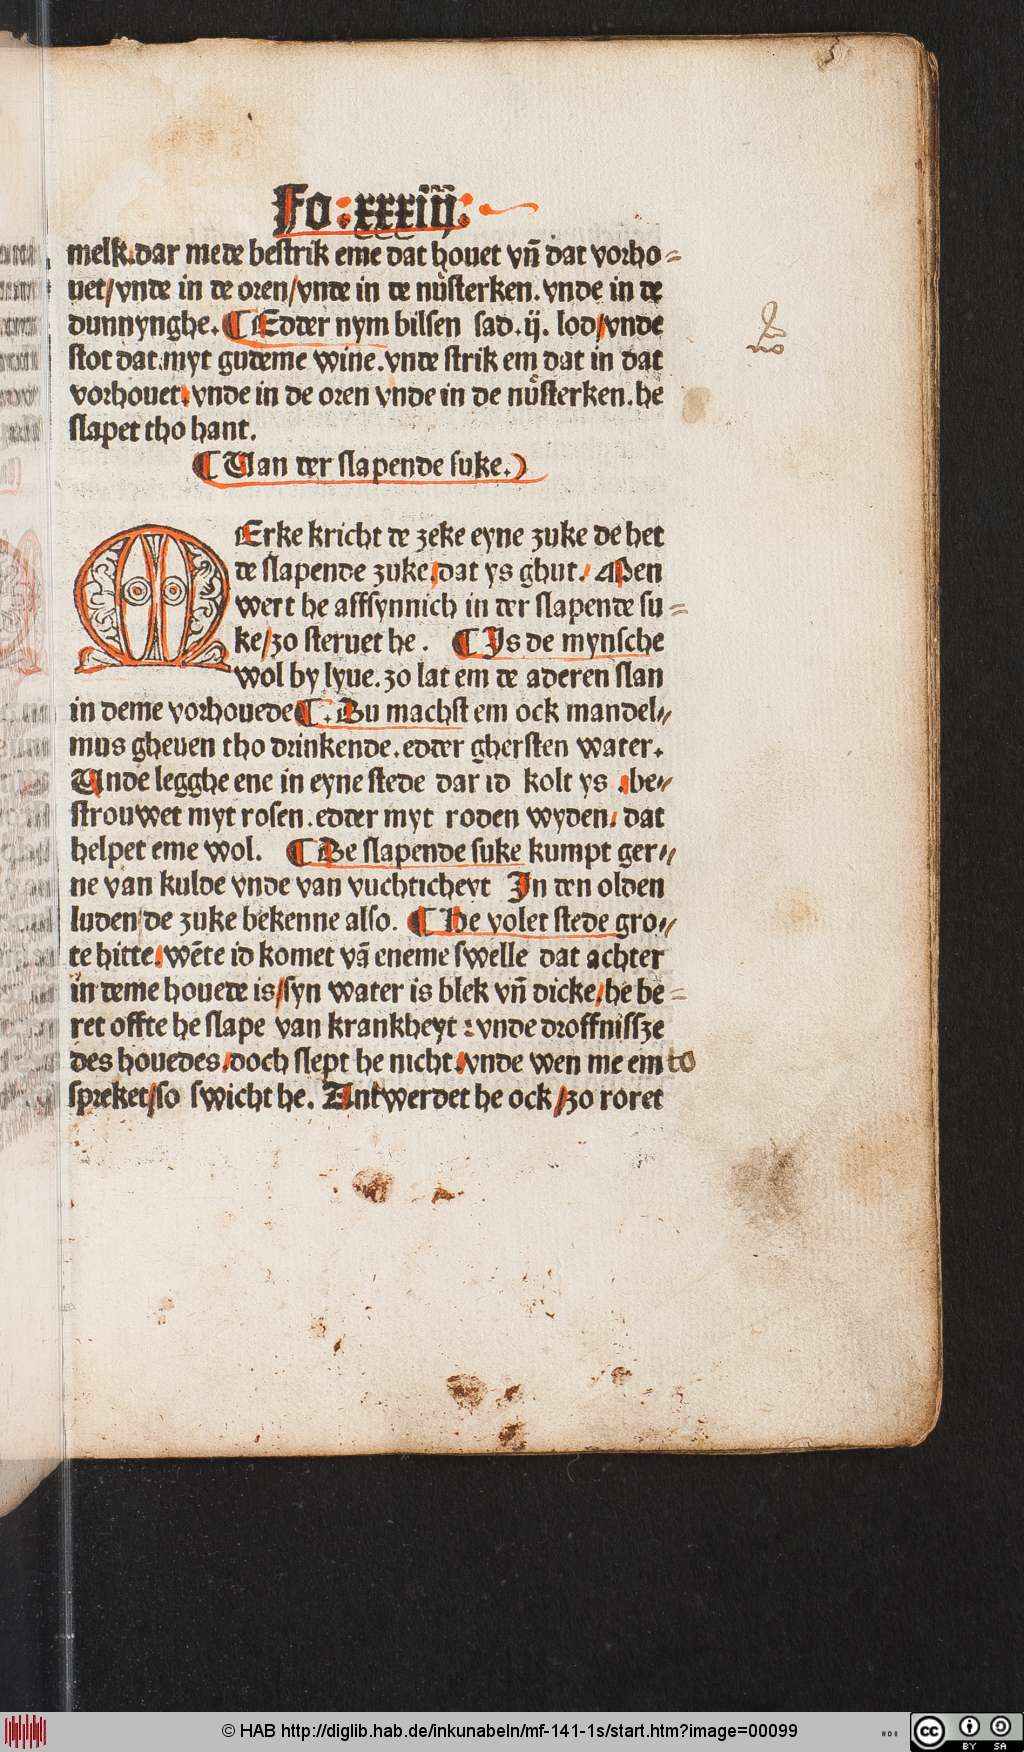 Fo: xxxiiij:
melk. dar mede bestrik eme dat houet vñ dat vorho=
uet/vnde in de oren/vnde in de nuͤsterken. vnde in de
dunnynghe. ¶ Edder nym bilsen sad. ij. lod/vnde
stot dat. myt gudeme wine. vnde strik em dat in dat
vorhouet. vnde in de oren vnde in de nuͤsterken. he
slapet tho hant.
¶ Uan der slapende suke.)
MErke kricht de zeke eyne zuke de het
de slapende zuke. dat ys ghut. Men
wert he affsynnich in der slapende su=
ke/zo steruet he. ¶ Is de mynsche
wol by lyue. zo lat em de aderen slan
in deme vorhouede ¶. Du machst em ock mandel//
mus gheuen tho drinkende. edder ghersten water.
Unde legghe ene in eyne stede dar id kolt ys . be//
strouwet myt rosen. edder myt roden wyden. dat
helpet eme wol. ¶ De slapende suke kumpt ger//
ne van kulde vnde van vuchticheyt In den olden
luden de zuke bekenne also. ¶ He volet stede gro//
te hitte. wēte id komet vā eneme swelle dat achter
in deme houede is/syn water is blek vñ dicke/he be=
ret offte he slape van krankheyt : vnde droffnissze
des houedes. doch slept he nicht. vnde wen me em to
spreket/so swicht he. Antwerdet he ock/zo roret
no
© HAB http://diglib.hab.de/inkunabeln/mf-141-1s/start.htm?image=00099
cc BY SA